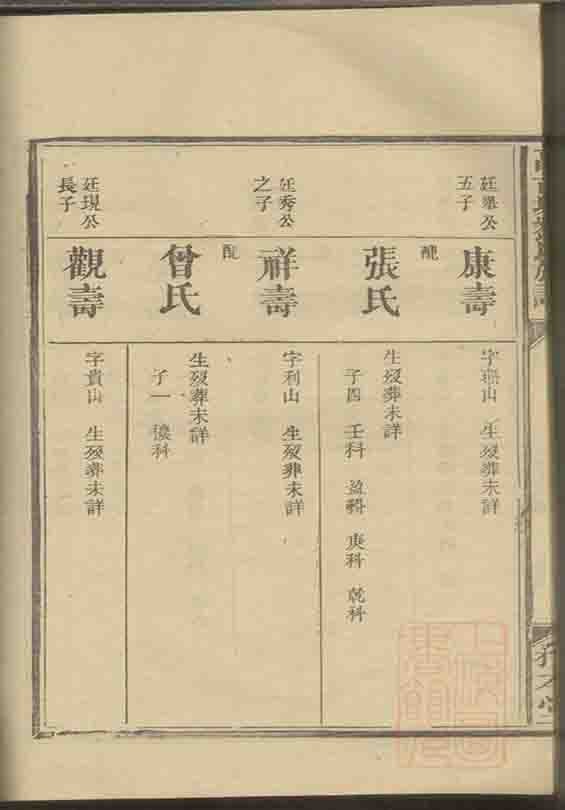 廷舉公
五子
康壽
字珊山 生歿葬未詳
配
張氏
生歿葬未詳
子四 壬科 盈科 庚科 乾科
廷秀公
之子
祥壽
字利山 生歿葬未詳
配
曾氏
生歿葬未詳
子一 穠科
廷現公
長子
觀壽
字貴山 生歿葬未詳